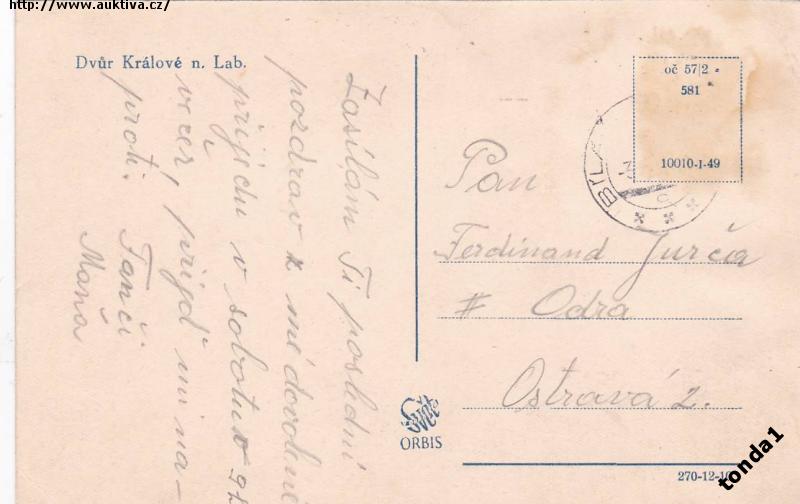 http://www.auktiva.cz/
Dvůr Králové n. Lab.
Zasílám Ti poslední
pozdrav z mé dovolené
přijedu v sobotu v
večer, přijď mi na-
proti.
Maňa
oč 57|2
581
10010-I-49
BÍL
Pan
Ferdinand Jurča
# Odra
Ostrava 2.
Svět
ORBIS
270-12-10
tonda1